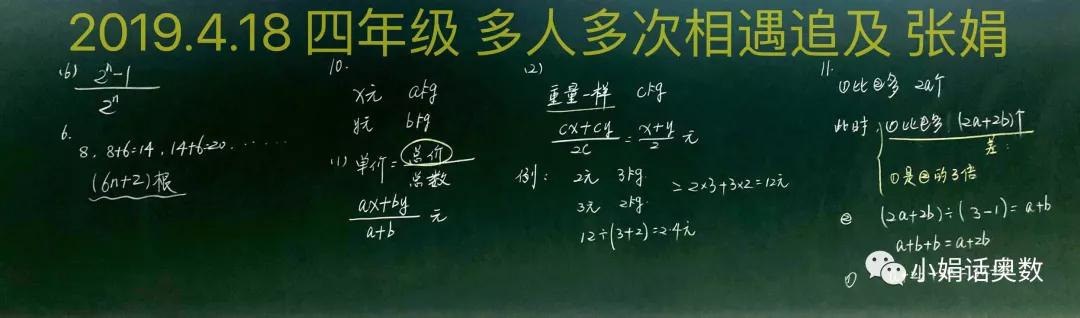 2019.4.18 四年级 多人多次相遇追及 张娟
(6) 2ⁿ-1
2ⁿ
6.
8, 8+6=14, 14+6=20, ······
(6n+2)根
10.
x元 a千g
y元 b千g
(1) 单价=总价
总数
ax+by 元
a+b
(2)
重量一样 c千g
cx+cy = x+y 元
2c 2
例: 2元 3千g
3元 2千g
=2×3+3×2=12元
12÷(3+2)=2.4元
11.
①比②多 2a个
此时, ①比②多 (2a+2b)个
差:
①是②的3倍
② (2a+2b)÷(3-1)=a+b
a+b+b=a+2b
①
小娟话奥数